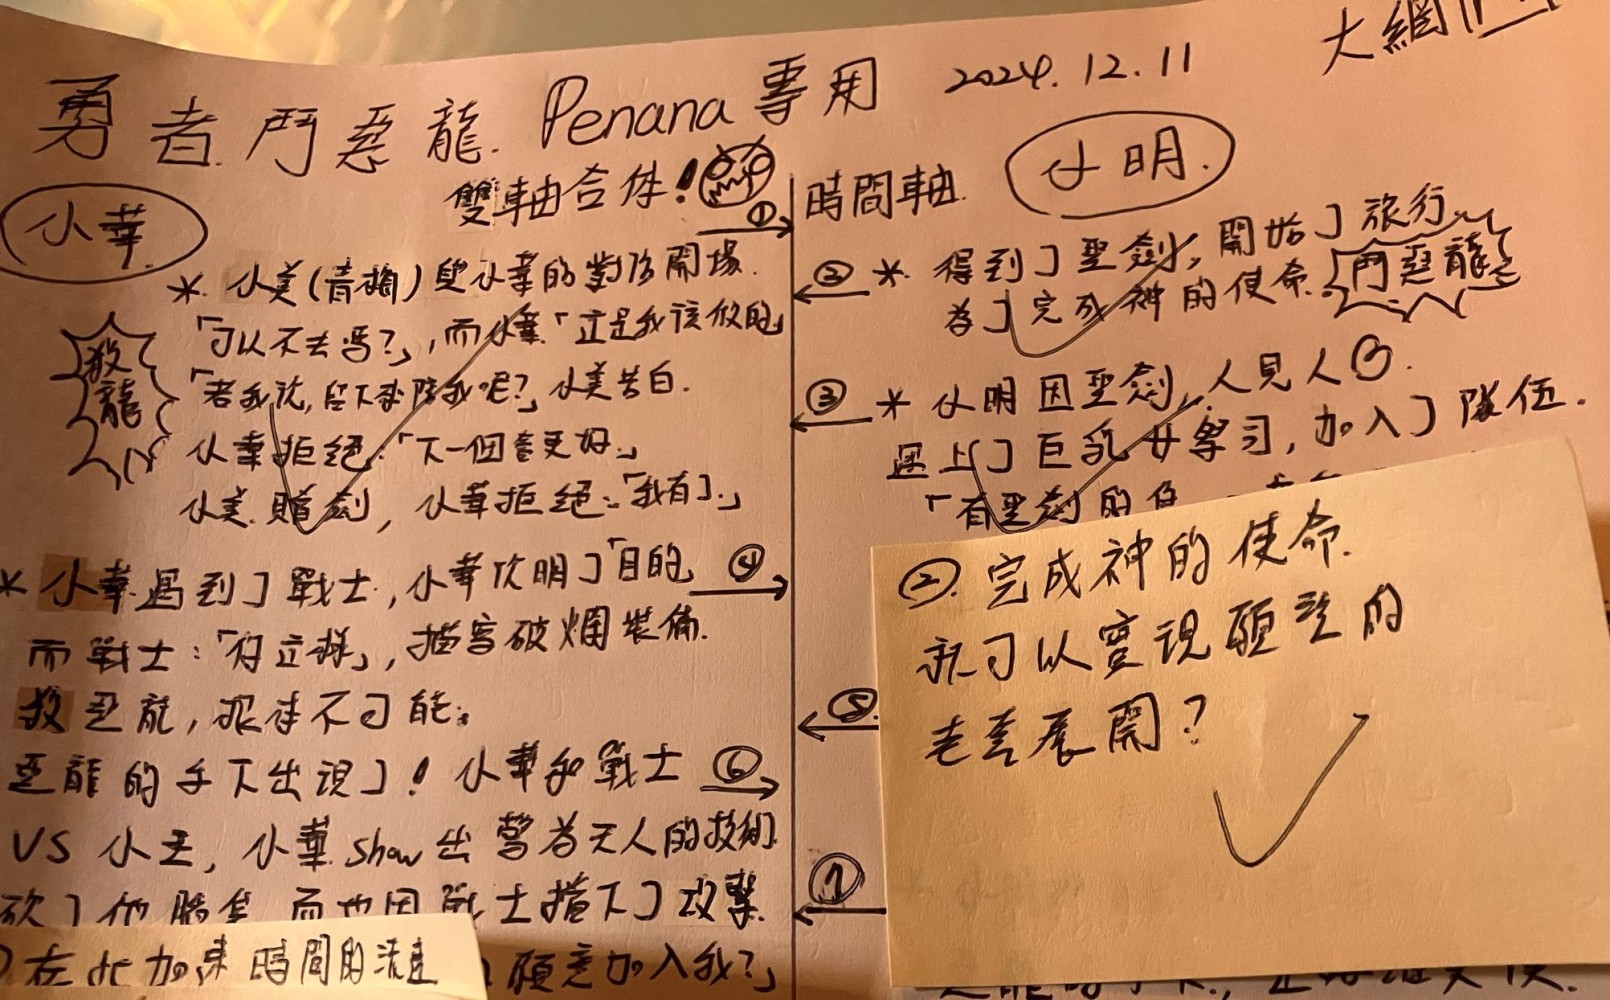 大綱
勇者鬥惡龍. Penana專用 2024.12.11
雙軸合体! ① 時間軸.
小華.
小明.
*. 小美(青梅)與小華的對話開場.
「可以不去嗎?」,而小華「這是我該做的」
「若我說,留下來陪我呢?」小美告白.
小華拒絕:「下一個會更好.」
小美贈劍,小華拒絕:「我有了.」
殺
龍
* 小華遇到了戰士.,小華仗明了「目的」 ④
而戰士:「你這樣」,描寫破爛裝備.
殺惡龍,根本不可能.
惡龍的手下出現了!小華和戰士 ⑥
VS 小王,小華 show 出驚為天人的技術.
砍了他 而也因戰士擋下了攻擊.
在此加速時間的流逝
願意加入我?」
② *. 得到了聖劍,開始了旅行.
為了完成神的使命. 鬥惡龍
③ * 小明因聖劍,人見人
遇上了巨乳女學習,加入了隊伍.
「有聖劍的
⑤.
⑦
②. 完成神的使命.
就可以實現願望的
老套展開?